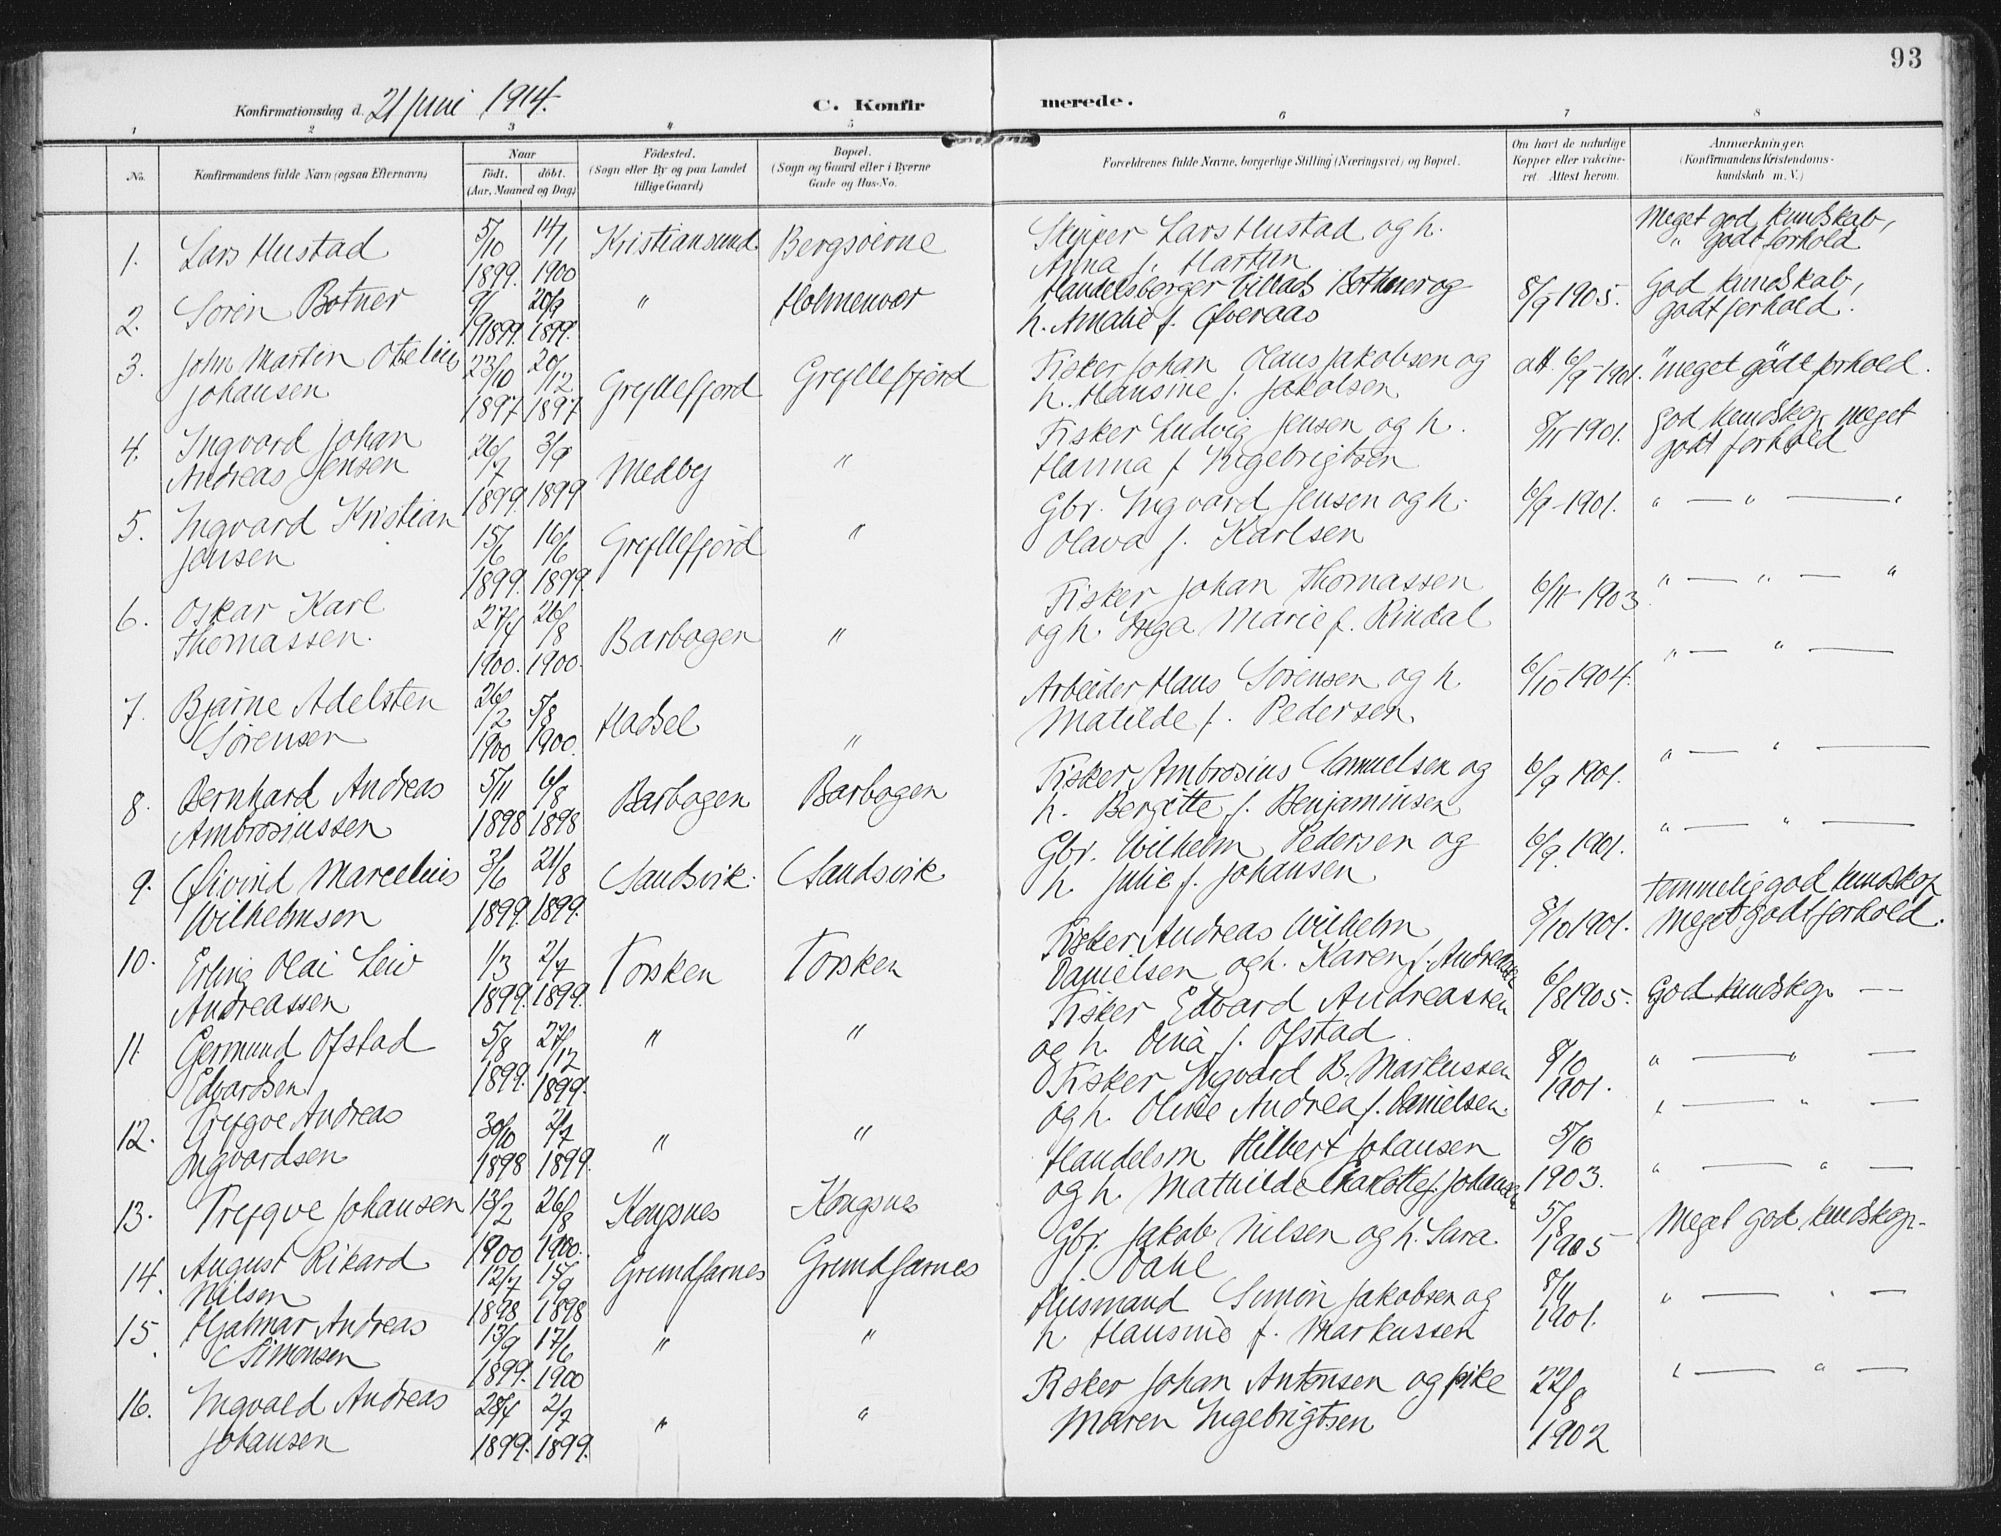 93
Konfirmationsdag d. 21 juni 1914.
C. Konfirmerede.
1 2 3 4 5 6 7 8
No.
Konfirmandens fulde Navn (ogsaa Efternavn)
Naar
födt. döbt.
(Aar, Maaned og Dag)
Födested.
(Sogn eller By og paa Landet
tillige Gaard)
Bopæl.
(Sogn og Gaard eller i Byerne
Gade og Hus-No.
Forældrenes fulde Navne, borgerlige Stilling (Næringsvei) og Bopæl.
Om havt de naturlige
Kopper eller vakcine-
ret. Attest herom.
Anmærkninger.
(Konfirmandens Kristendoms-
kundskab m. V.)
1. Lars Hustad 5/10 1899. 14/1 1900 Kristiansund. Bergsöierne Skipper Lars Hustad og h. Anna f. Martin Meget god kundskab, " godt forhold
2. Sören Botner 9/9 1899. 20/9 1899. " Holmenvær Handelsborger Villads Bothner og h. Amalie f. Överaas 8/9 1905. God kundskab, godt forhold.
3. John Martin Otelius Johansen 23/10 1897 20/12 1897 Gryllefjord Gryllefjord Fisker Johan Olaus Jakobsen og h. Hansine f. Jakobsen att. 6/9-1901. " meget godt forhold.
4. Ingvard Johan Andreas Jensen 26/7 1899. 3/9 1899 Medby " Fisker Ludvig Jensen og h. Hanna f Ingebrigtsen 8/11 1901. God kundskap, meget godt forhold
5. Ingvard Kristian Jensen 15/6 1899. 16/6 1899. Gryllefjord " Gbr. Ingvard Jensen og h. Olava f. Karlsen 6/9-1901. " — " — "
6. Oskar Karl Thomassen. 27/4 1900. 26/8 1900. Barbogen " Fisker Johan Thomassen og h. Inga Marie f. Rindal 6/11-1903. " — " — "
7. Bjarne Adelsten Sörensen 26/2 1900 5/8 1900. Hadsel " Arbeider Hans Sörensen og h Matilde f. Pedersen 6/10-1904. " — " —
8. Bernhard Andreas Ambrosiussen 5/11 1898 6/8 1898 Barbogen Barbogen Fisker Ambrosius Samuelsen og h. Bergitte f. Benjaminsen 6/9 1901. " — " —
9. Öivind Marcelius Wilhelmsen 3/6 1899. 21/8 1899. Sandsvik. Sandsvik Gbr. Wilhelm Pedersen og h. Julie f. Johansen 6/9. 1901. " — " —
10. Erling Olai Leiv Andreassen 1/3 1899. 2/7 1899. Torsken Torsken Fisker Andreas Wilhelm Danielsen og h. Karen f. Andreassen 8/10 1901. temmelig god kundskap Meget godt forhold.
11. Germund Ofstad Edvardsen 5/8 1899. 27/12 1899. " " Fisker Edvard Andreassen og h. Dina f. Ofstad 6/8 1905. God kundskap —
12. Trygve Andreas Ingvardsen 30/10 1898 2/7 1899. " " Fisker Ingvard B. Markussen og h. Oline Andrea f. Danielsen. 8/10 1901. " — " —
13. Trygve Johansen 13/2 1900 26/8 1900. Kongsnes Kongsnes Handelsm Hilbert Johansen og h. Mathilde Charlotte f. Johansen 5/10 1903. " — " —
14. August Rikard Nilsen 12/7 1898 15/9 1898 Grundfarnes Grundfarnes Gbr. Jakob Nilsen og h. Sara f Dahl 5/8 1905 Meget god kundskap-
15. Hjalmar Andreas Simonsen 13/9 1899. 17/6 1900 " " Husmand Simon Jakobsen og h Hansine f. Markussen 8/11 1901. " — " —
16. Ingvald Andreas Johansen 28/4 1899. 2/7 1899. " " Fisker Johan Antonsen og pike Maren Ingebrigtsen 22/8 1902 " — " —